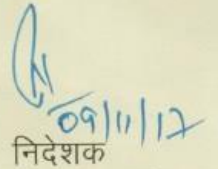 09/11/17
निदेशक